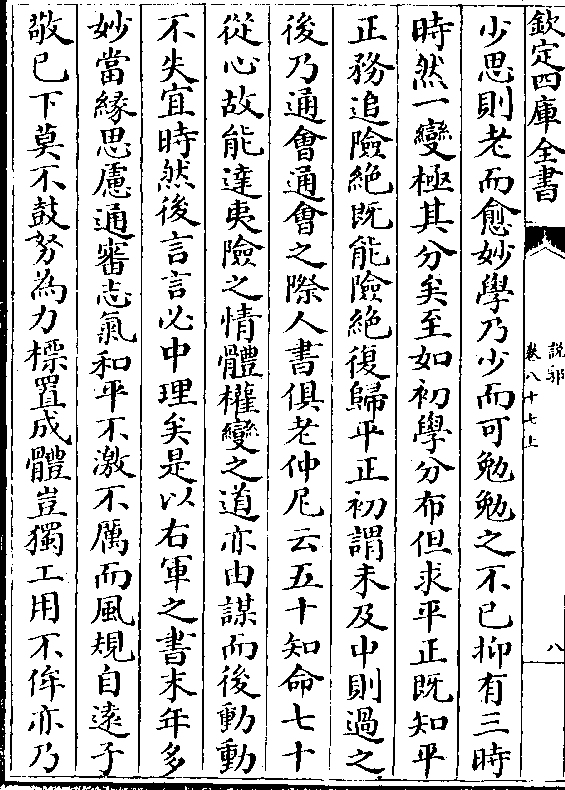 欽定四庫全書
說郛
卷八十七上
八
少思則老而愈妙學乃少而可勉勉之不已抑有三時
時然一變極其分矣至如初學分布但求平正既知平
正務追險絶既能險絶復歸平正初謂未及中則過之
後乃通㑹通㑹之際人書俱老仲尼云五十知命七十
從心故能達夷險之情體權變之道亦由謀而後動動
不失宜時然後言言必中理矣是以右軍之書末年多
妙當緣思慮通審志氣和平不激不厲而風規自逺子
敬已下莫不鼓努為力標置成體豈獨工用不侔亦乃